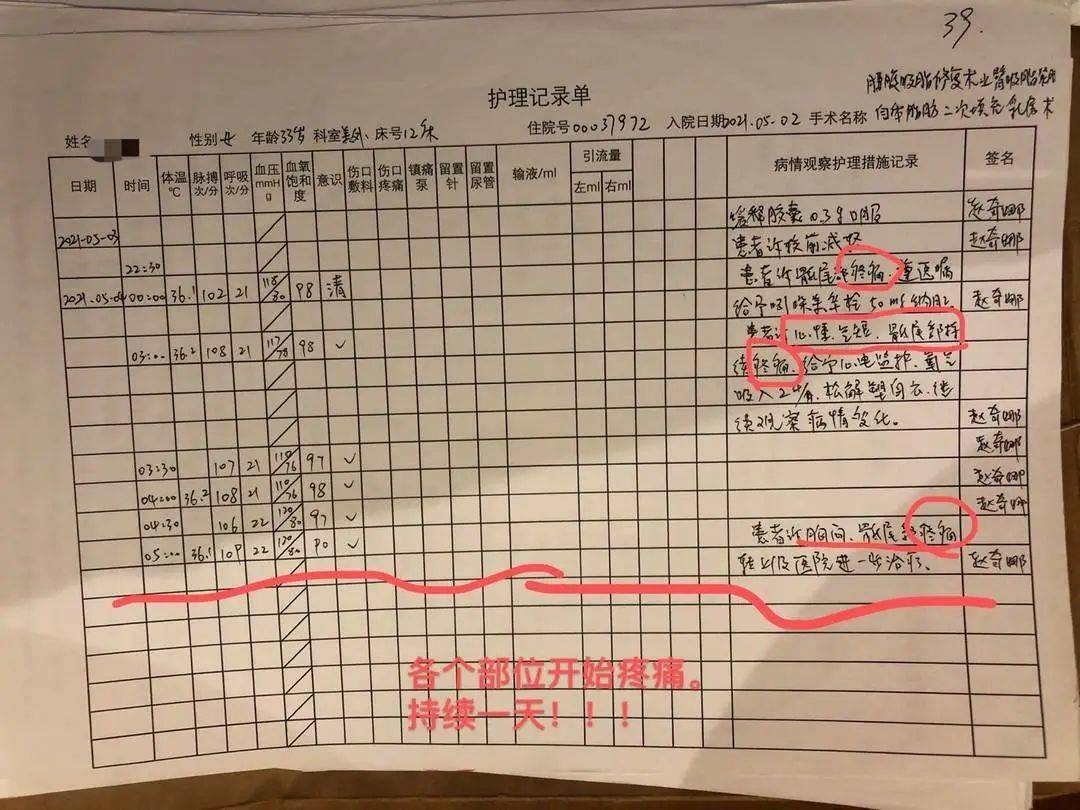 39.
腰腹吸脂修复术+上臂吸脂术
护理记录单
自体脂肪二次填充乳房术
姓名 性别 女 年龄 33岁 科室 美外 床号 12床 住院号 00037972 入院日期 2021.05-02 手术名称
日期 时间 体温℃ 脉搏次/分 呼吸次/分 血压mmHg 血氧饱和度 意识 伤口敷料 伤口疼痛 镇痛泵 留置针 留置尿管 输液/ml 引流量 左ml 右ml 病情观察护理措施记录 签名
缓释胶囊0.3g口服 赵奇娜
2021-05-03 患者诉较前减轻 赵奇娜
22:30 患者诉骶尾部疼痛,遵医嘱
2021.05-04 00:00 36.1 102 21 118/80 98 清 给予吲哚美辛栓50mg纳肛。 赵奇娜
患者诉心慌、气短、骶尾部持
03:00 36.2 108 21 117/78 98 ✓ 续疼痛,给予心电监护、氧气
吸入2L/分,松解塑身衣,继
续观察病情变化。 赵奇娜
赵奇娜
03:30 107 21 110/76 97 ✓ 赵奇娜
04:00 36.2 108 21 110/76 98 ✓ 赵奇娜
04:30 106 22 120/80 97 ✓ 患者诉胸闷、骶尾部疼痛
05:00 36.1 109 22 120/80 90 ✓ 转上级医院进一步治疗。 赵奇娜
各个部位开始疼痛。
持续一天！！！